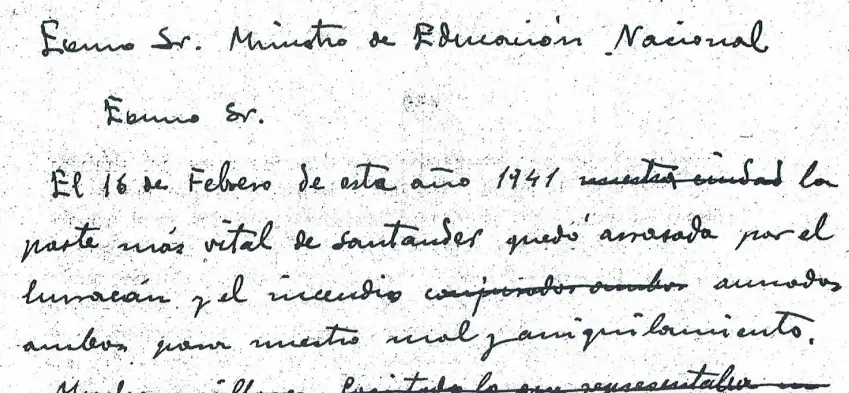 Excmo Sr. Ministro de Educación Nacional
Excmo Sr.
El 16 de Febrero de este año 1941 nuestra ciudad la
parte más vital de Santander quedó arrasada por el
huracán y el incendio conjurados ambos aunados
ambos para nuestro mal y aniquilamiento.
lo que representaba